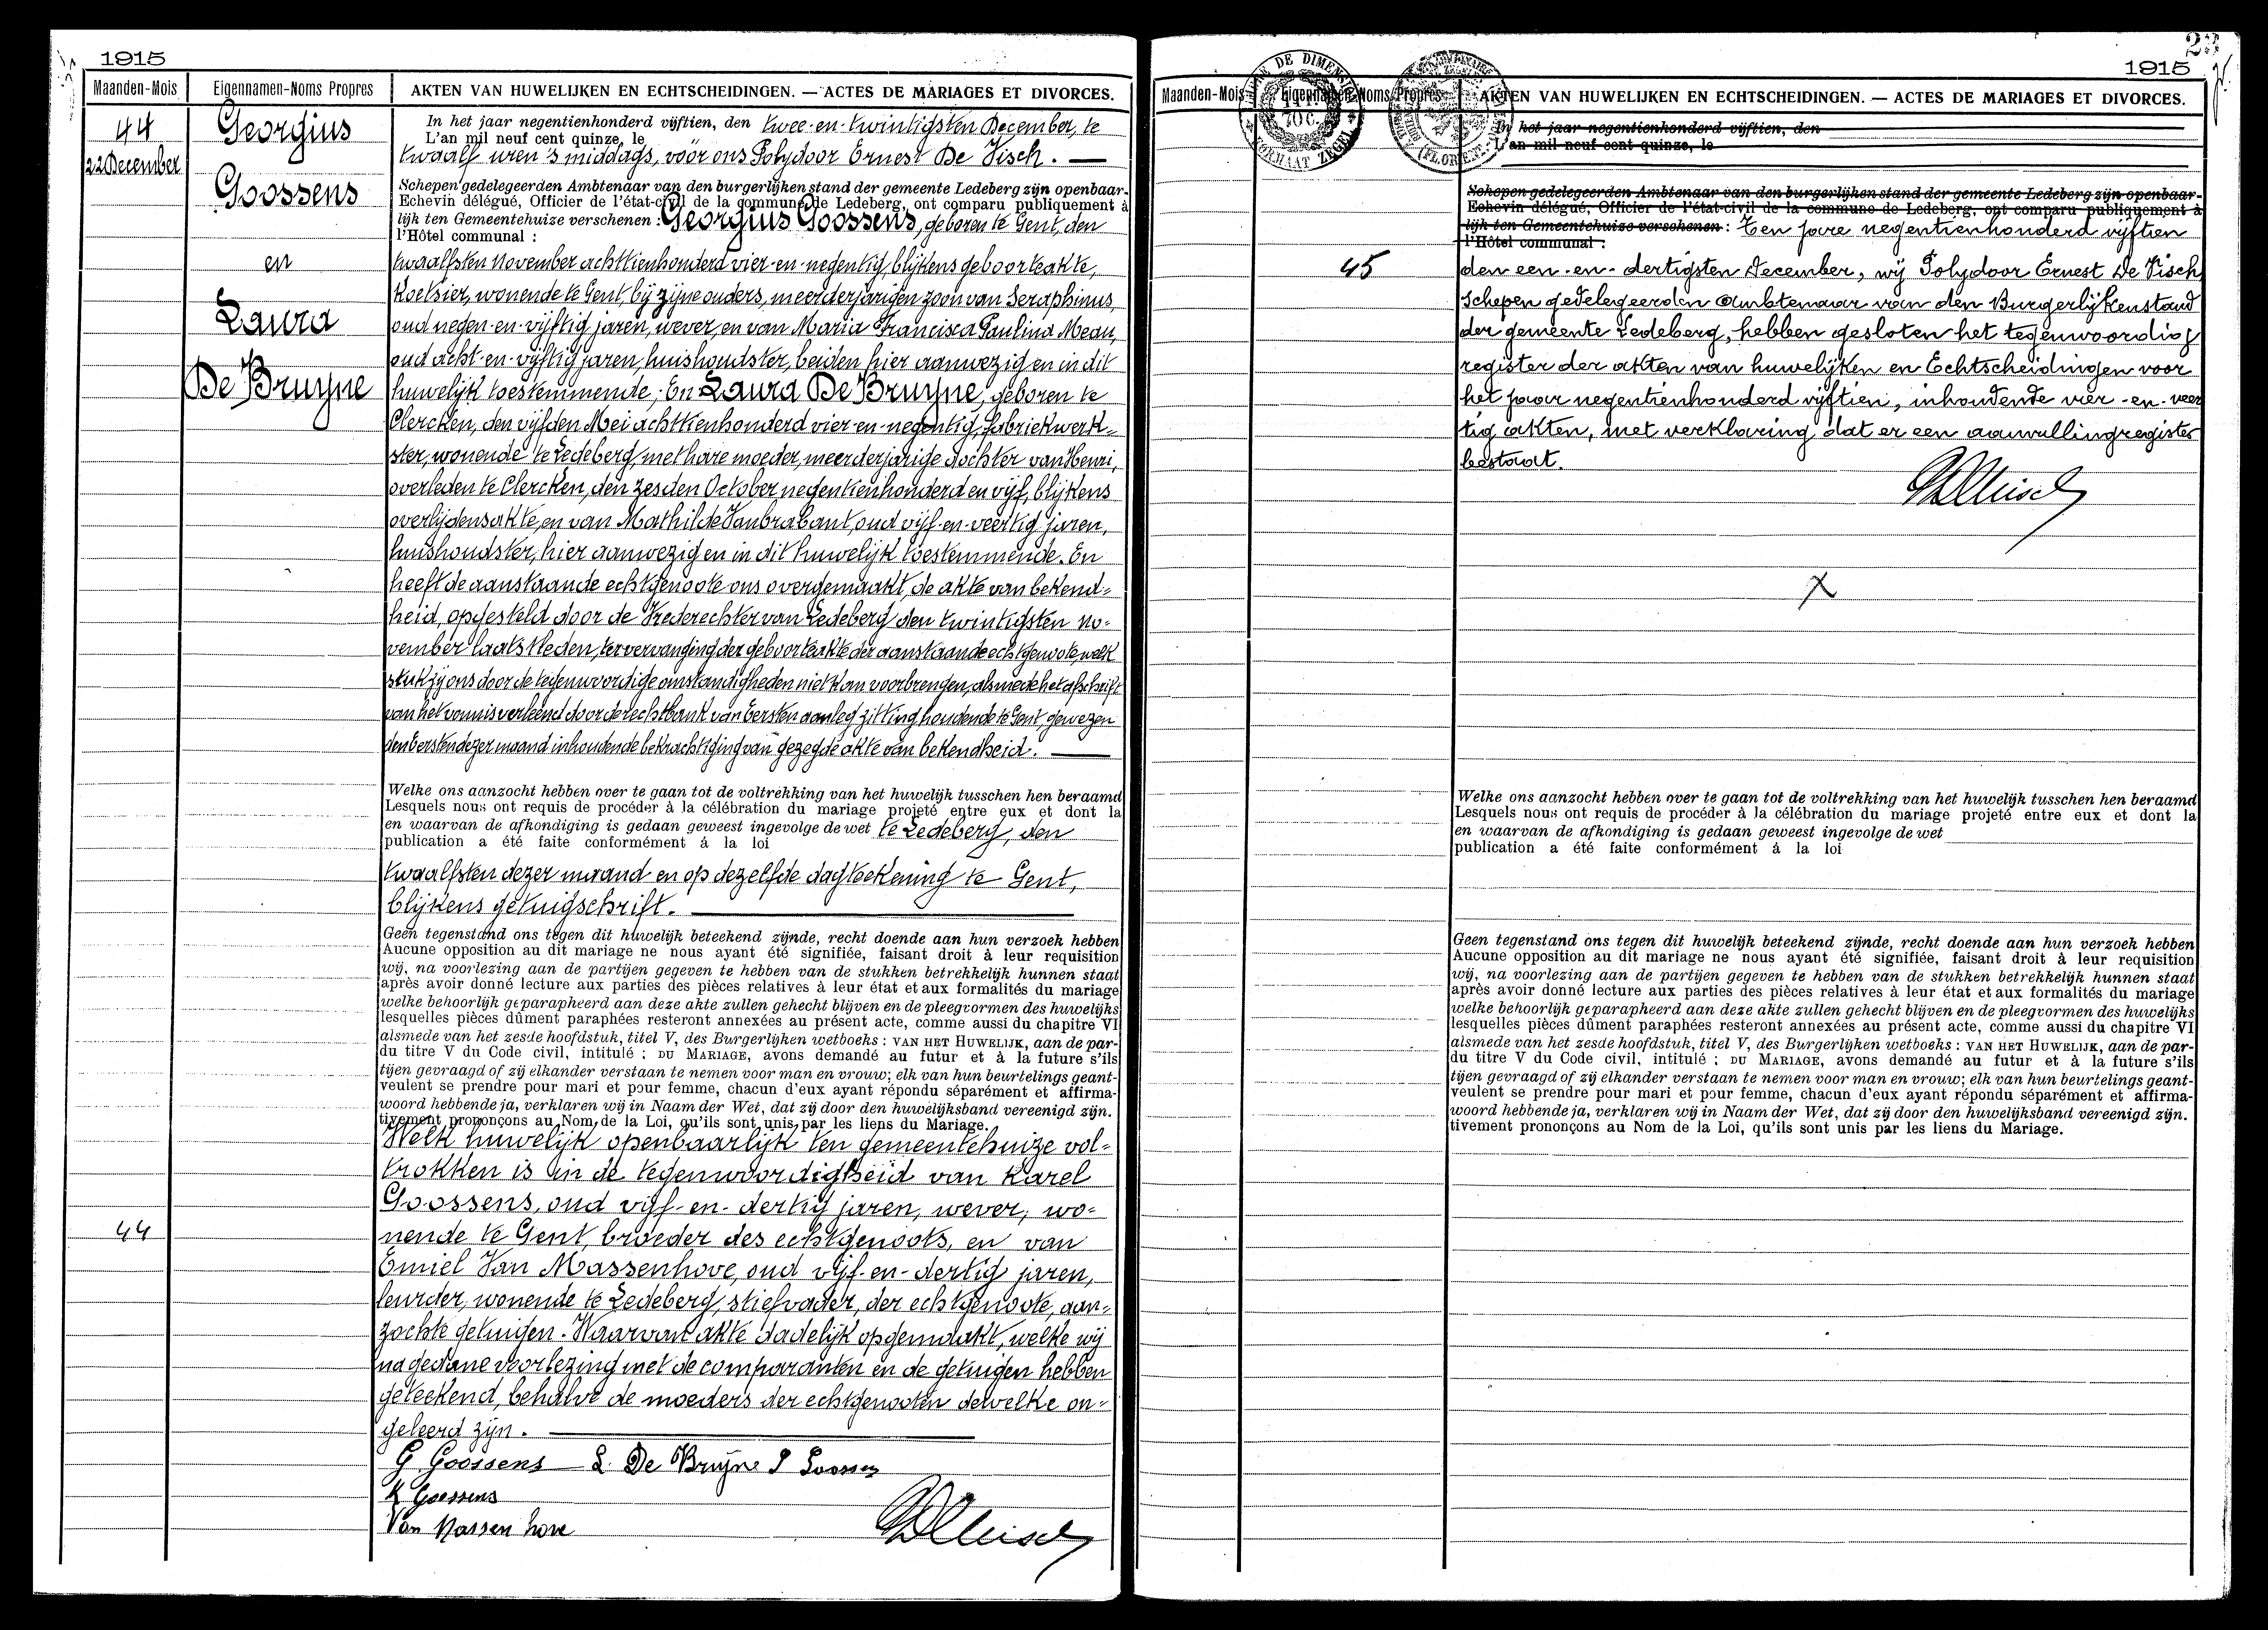 1915
Maanden-Mois Eigennamen-Noms Propres AKTEN VAN HUWELIJKEN EN ECHTSCHEIDINGEN. — ACTES DE MARIAGES ET DIVORCES.
44
22 December
Georgius
Goossens
en
Laura
De Bruyne
In het jaar negentienhonderd vijftien, den twee-en-twintigsten December, te
L'an mil neuf cent quinze, le
twaalf uren 's middags, voor ons Polydoor Ernest De Visch. —
Schepen gedelegeerden Ambtenaar van den burgerlijken stand der gemeente Ledeberg zijn openbaar-
Echevin délégué, Officier de l'état-civil de la commune de Ledeberg, ont comparu publiquement à
lijk ten Gemeentehuize verschenen : Georgius Goossens, geboren te Gent, den
l'Hôtel communal :
twaalfsten November achttienhonderd vier-en-negentig, blijkens geboorteakte,
Koetsier, wonende te Gent, bij zijne ouders, meerderjarigen zoon van Seraphinus,
oud negen-en-vijftig jaren, wever, en van Maria Francisca Paulina Meau,
oud acht-en-vijftig jaren, huishoudster, beiden hier aanwezig en in dit
huwelijk toestemmende; En Laura De Bruyne, geboren te
Clercken, den vijfden Mei achttienhonderd vier-en-negentig, fabriekwerk=
ster, wonende te Ledeberg, met hare moeder, meerderjarige dochter van Henri,
overleden te Clercken, den zesden October negentienhonderd en vijf, blijkens
overlijdensakte, en van Mathilde Vanbrabant, oud vijf-en-veertig jaren,
huishoudster, hier aanwezig en in dit huwelijk toestemmende. En
heeft de aanstaande echtgenoote ons overgemaakt, de akte van bekend=
heid, opgesteld door de Vrederechter van Ledeberg den twintigsten No=
vember laatstleden, ter vervanging der geboorteakte der aanstaande echtgenoote, welk
stuk zij ons door de tegenwoordige omstandigheden niet kan voorbrengen, alsmede het afschrift
van het vonnis verleend door de rechtbank van Eersten aanleg zitting houdende te Gent, gewezen
den Eersten dezer maand inhoudende bekrachtiging van gezegde akte van bekendheid. —
Welke ons aanzocht hebben over te gaan tot de voltrekking van het huwelijk tusschen hen beraamd
Lesquels nous ont requis de procéder à la célébration du mariage projeté entre eux et dont la
en waarvan de afkondiging is gedaan geweest ingevolge de wet te Ledeberg, den
publication a été faite conformément à la loi
twaalfsten dezer maand en op dezelfde dagteekening te Gent,
blijkens getuigschrift. —
Geen tegenstand ons tegen dit huwelijk beteekend zijnde, recht doende aan hun verzoek hebben
Aucune opposition au dit mariage ne nous ayant été signifiée, faisant droit à leur requisition
wij, na voorlezing aan de partijen gegeven te hebben van de stukken betrekkelijk hunnen staat
après avoir donné lecture aux parties des pièces relatives à leur état et aux formalités du mariage
welke behoorlijk geparapheerd aan deze akte zullen gehecht blijven en de pleegvormen des huwelijks
lesquelles pièces dûment paraphées resteront annexées au présent acte, comme aussi du chapitre VI
alsmede van het zesde hoofdstuk, titel V, des Burgerlijken wetboeks : VAN HET HUWELIJK, aan de par-
du titre V du Code civil, intitulé : DU MARIAGE, avons demandé au futur et à la future s'ils
tijen gevraagd of zij elkander verstaan te nemen voor man en vrouw; elk van hun beurtelings geant-
veulent se prendre pour mari et pour femme, chacun d'eux ayant répondu séparément et affirma-
woord hebbende ja, verklaren wij in Naam der Wet, dat zij door den huwelijksband vereenigd zijn.
tivement prononçons au Nom de la Loi, qu'ils sont unis par les liens du Mariage.
Welk huwelijk openbaarlijk ten gemeentehuize vol=
trokken is in de tegenwoordigheid van Karel
Goossens, oud vijf-en-dertig jaren, wever, wo=
44
nende te Gent, broeder des echtgenoots, en van
Emiel Van Massenhove, oud vijf-en-dertig jaren,
leurder, wonende te Ledeberg, stiefvader, der echtgenoote, aan=
zochte getuigen. Waarvan akte dadelijk opgemaakt, welke wij
na gedane voorlezing met de comparanten en de getuigen hebben
geteekend, behalve de moeders der echtgenooten dewelke on=
geleerd zijn. —
G. Goossens L. De Bruyne S Goossens
K Goossens
Van Massen hove
1915
Maanden-Mois Eigennamen-Noms Propres AKTEN VAN HUWELIJKEN EN ECHTSCHEIDINGEN. — ACTES DE MARIAGES ET DIVORCES.
In het jaar negentienhonderd vijftien, den
L'an mil neuf cent quinze, le
Schepen gedelegeerden Ambtenaar van den burgerlijken stand der gemeente Ledeberg zijn openbaar-
Echevin délégué, Officier de l'état-civil de la commune de Ledeberg, ont comparu publiquement à
lijk ten Gemeentehuize verschenen : Ten jare negentienhonderd vijftien
l'Hôtel communal :
45
den een-en-dertigsten December, wij Polydoor Ernest De Visch
Schepen gedelegeerden Ambtenaar van den Burgerlijkenstand
der gemeente Ledeberg, hebben gesloten het tegenwoordig
register der akten van huwelijken en Echtscheidingen voor
het jaar negentienhonderd vijftien, inhoudende vier-en-veer
tig akten, met verklaring dat er een aanvullingregister
bestaat.
X
Welke ons aanzocht hebben over te gaan tot de voltrekking van het huwelijk tusschen hen beraamd
Lesquels nous ont requis de procéder à la célébration du mariage projeté entre eux et dont la
en waarvan de afkondiging is gedaan geweest ingevolge de wet
publication a été faite conformément à la loi
Geen tegenstand ons tegen dit huwelijk beteekend zijnde, recht doende aan hun verzoek hebben
Aucune opposition au dit mariage ne nous ayant été signifiée, faisant droit à leur requisition
wij, na voorlezing aan de partijen gegeven te hebben van de stukken betrekkelijk hunnen staat
après avoir donné lecture aux parties des pièces relatives à leur état et aux formalités du mariage
welke behoorlijk geparapheerd aan deze akte zullen gehecht blijven en de pleegvormen des huwelijks
lesquelles pièces dûment paraphées resteront annexées au présent acte, comme aussi du chapitre VI
alsmede van het zesde hoofdstuk, titel V, des Burgerlijken wetboeks : VAN HET HUWELIJK, aan de par-
du titre V du Code civil, intitulé : DU MARIAGE, avons demandé au futur et à la future s'ils
tijen gevraagd of zij elkander verstaan te nemen voor man en vrouw; elk van hun beurtelings geant-
veulent se prendre pour mari et pour femme, chacun d'eux ayant répondu séparément et affirma-
woord hebbende ja, verklaren wij in Naam der Wet, dat zij door den huwelijksband vereenigd zijn.
tivement prononçons au Nom de la Loi, qu'ils sont unis par les liens du Mariage.